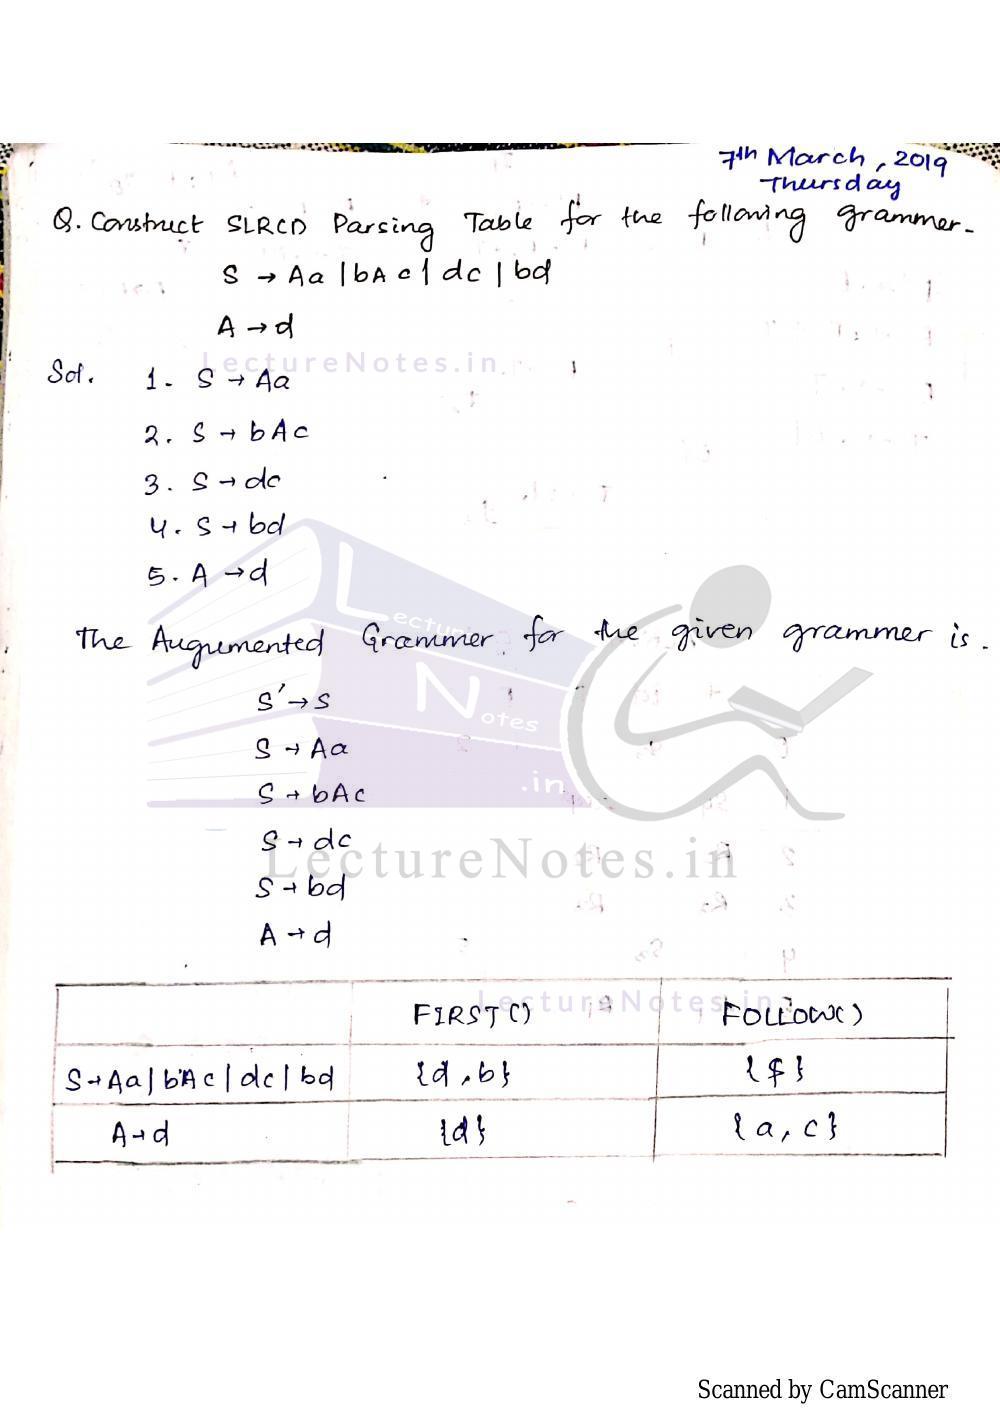 7th March, 2019
Thursday
Q. Construct SLRCD Parsing Table for the following grammer.
S → Aa | bAc | dc | bd
A → d
LectureNotes.in
Sol. 1. S → Aa
2. S → bAc
3. S → dc
4. S → bd
5. A → d
Lecture
Notes
.in
The Augumented Grammer for the given grammer is.
S' → S
S → Aa
S → bAc
S → dc
LectureNotes.in
S → bd
A → d
LectureNotes.in
FIRST() FOLLOW()
S → Aa | bAc | dc | bd {d, b} {$}
A → d {d} {a, c}
Scanned by CamScanner